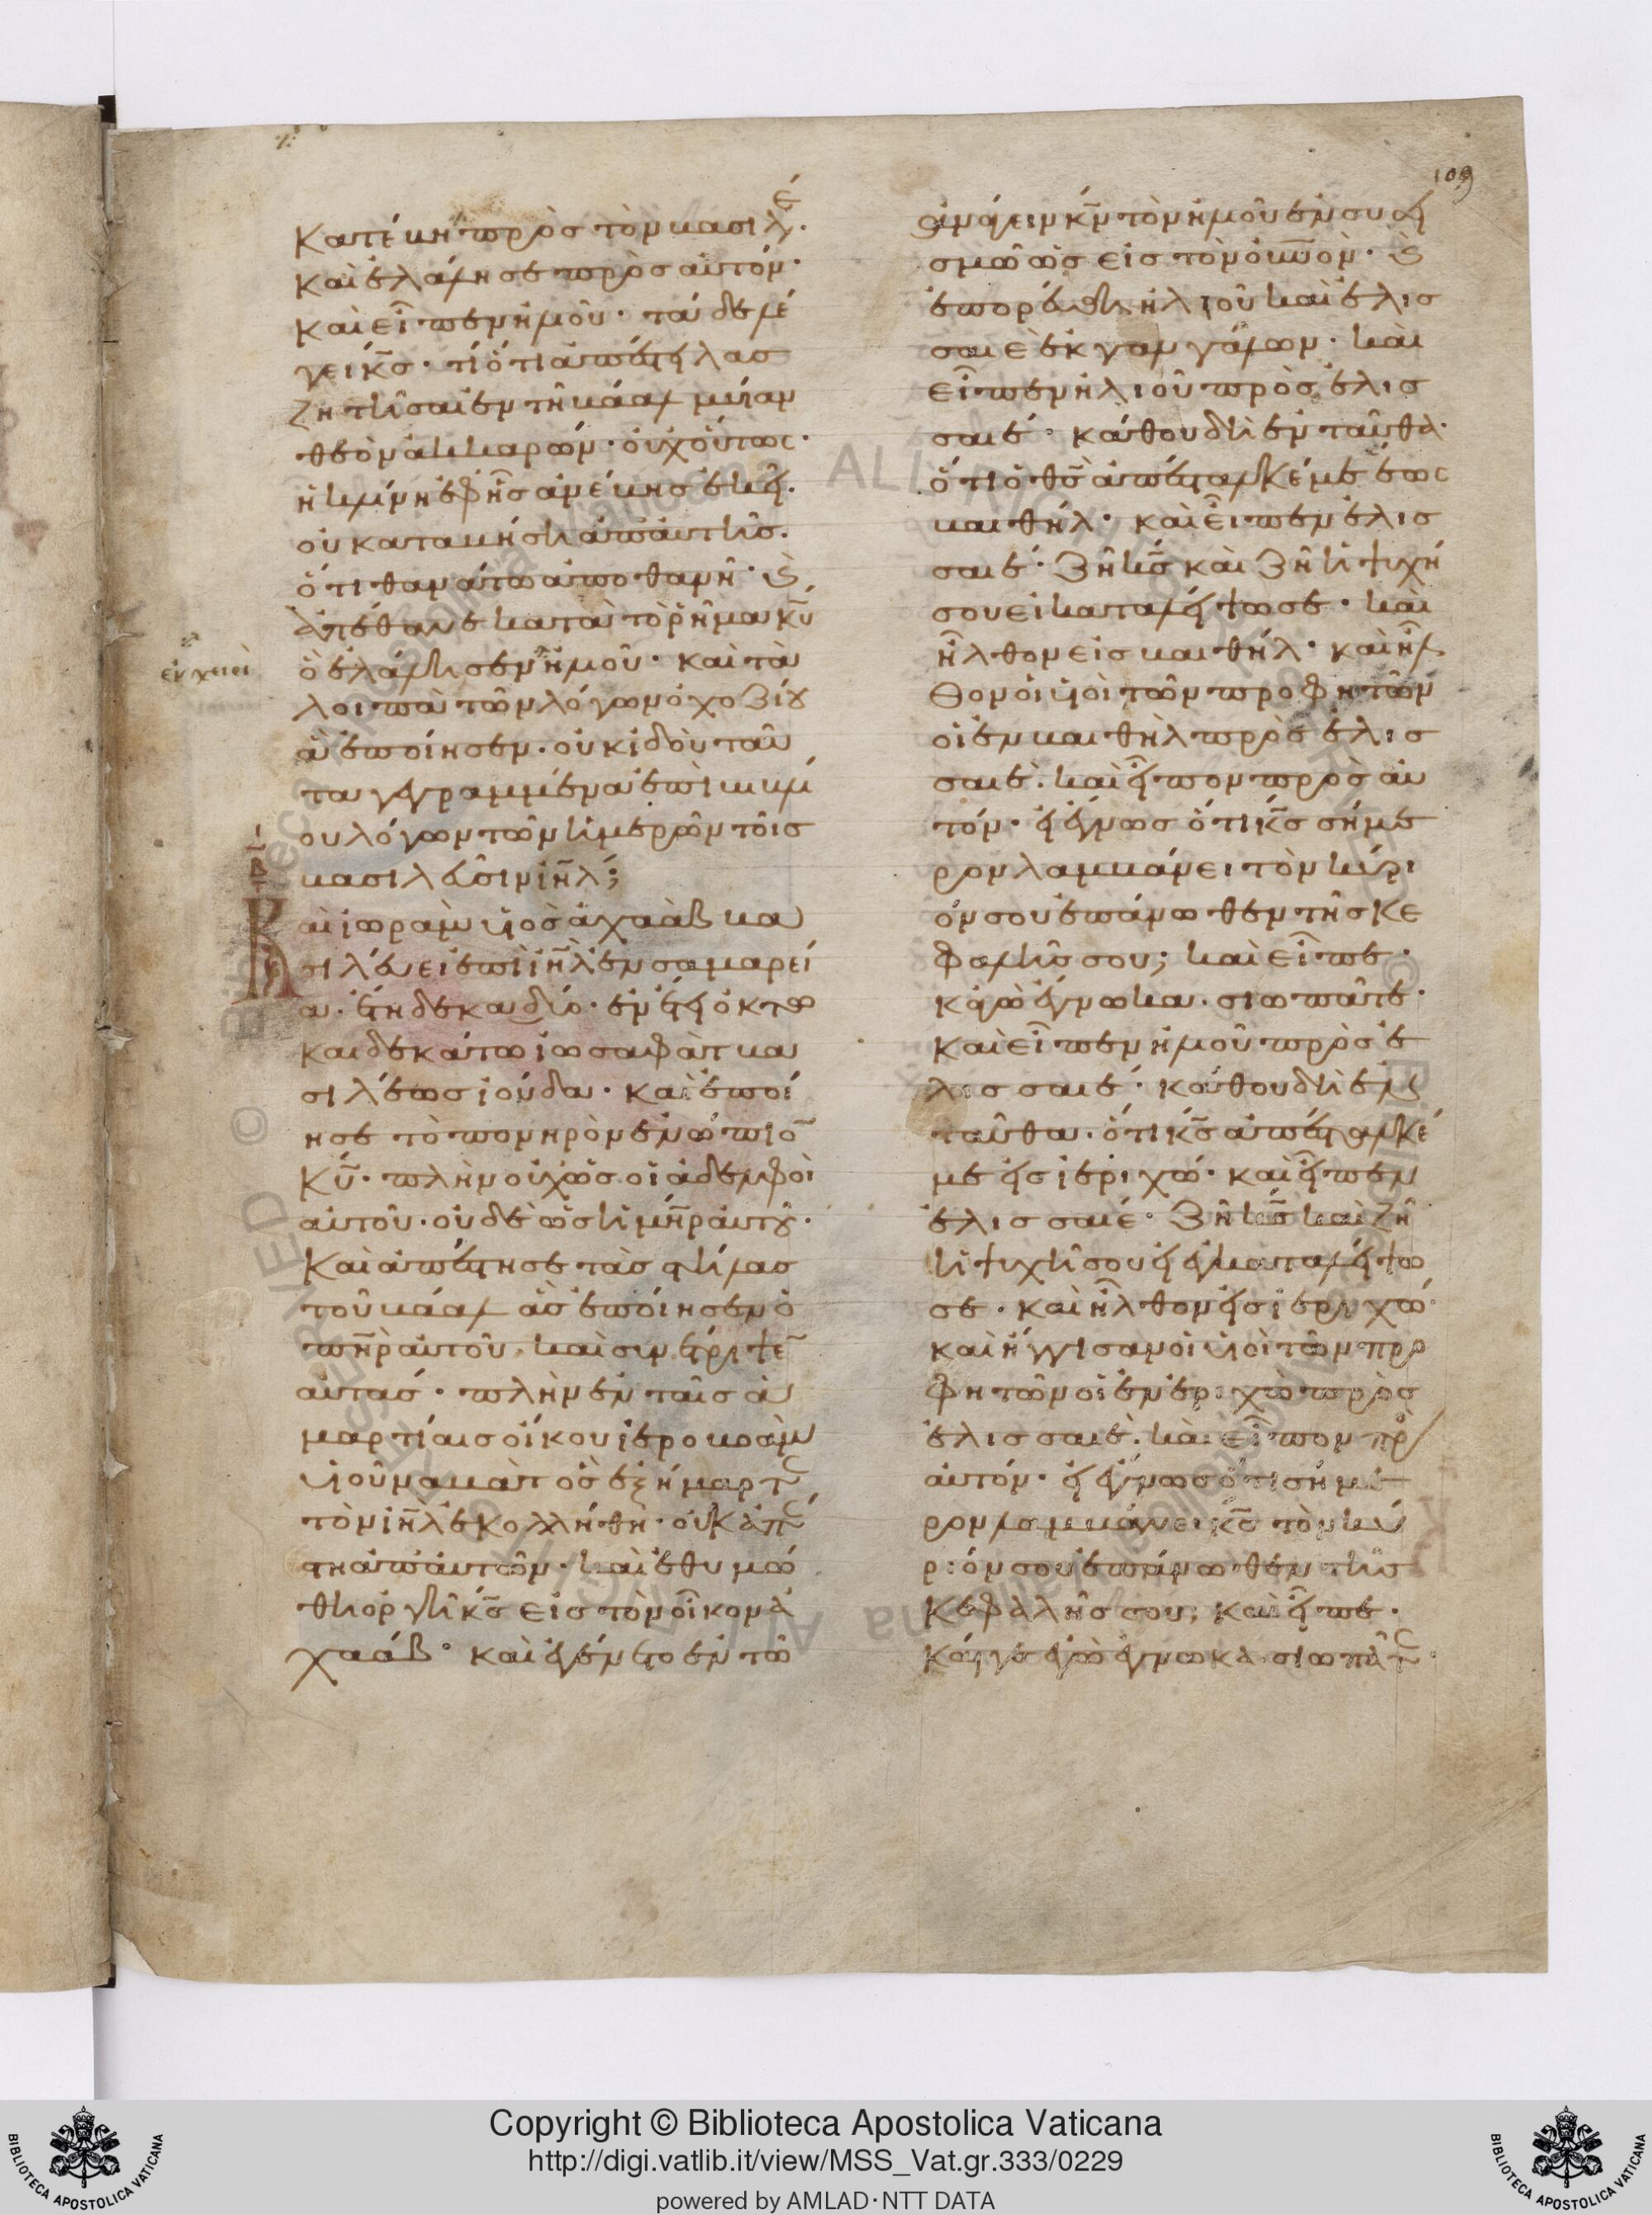 109
κατέβη πρὸς τὸν βασιλέ.
καὶ ἐλάλησε πρὸς αὐτόν·
καὶ εἶπεν ἠλιοῦ· τάδε λέ
γει κ̅ς̅· τί ὅτι ἀπέστειλας
ζητῆσαι ἐν τῆ βάαλ μυῖαν
θεὸν ἀκκαρών· οὐχ οὕτως·
ἡ κλίνη ἐφ ἧς ἀνέβης ἐκεῖ.
οὐ καταβήση ἀπ αὐτῆς.
ὅτι θανάτω ἀποθανῆ· ϗ
ἀπέθανε κατὰ τὸ ῥῆμα κ̅υ̅
ἐν χειρὶ
ὃ ἐλάλησεν ἠλιοῦ· καὶ τὰ
λοιπὰ τῶν λόγων ὀχοζίου
ἃ ἐποίησεν. οὐκ ἰδοὺ ταῦ
τα γεγραμμένα ἐπὶ βιβλί
ου λόγων τῶν ἡμερῶν τοῖς
βασιλεῦσιν ι̅η̅λ̅;
Καὶ ἰωρὰμ υἱὸς ἀχαὰβ βα
σιλεύει ἐπὶ ι̅η̅λ̅ ἐν σαμαρεί
α. ἔτη δεκαδύο· ἐν ἔτει ὀκτω
καιδεκάτω ἰωσαφὰτ βα
σιλέως ἰούδα· καὶ ἐποί
ησε τὸ πονηρὸν ἐνώπιο̅
κ̅υ̅· πλὴν οὐχ ὡς οἱ ἀδελφοὶ
αὐτοῦ· οὐδὲ ὡς ἡ μ̅η̅ρ̅ αὐτοῦ·
καὶ ἀπέστησε τὰς στήλας
τοῦ βάαλ ἃς ἐποίησεν ὁ
π̅η̅ρ̅ αὐτοῦ. καὶ συνέτριψε̅
αὐτάς· πλὴν ἐν ταῖς ἁ
μαρτίαις οἴκου ἱεροβοὰμ
υἱοῦ ναβὰτ ὃς ἐξήμαρτε
τὸν ι̅η̅λ̅ ἐκολλήθη· οὐκ ἀπέ
στη ἀπ αὐτῶν· καὶ ἐθυμώ
θη ὀργῆ κ̅ς̅ εἰς τὸν οἶκον ἀ
χαάβ· καὶ ἐγένετο ἐν τῶ
ἀνάγειν κ̅ν̅ τὸν ἠλιοῦ ἐν συσει
σμῶ ὡς εἰς τὸν ο̅υ̅ν̅ο̅ν̅· ϗ
ἐπορεύθη ἠλιοῦ καὶ ἐλισ
σαιὲ ἐκ γαλγάλων· καὶ
εἶπεν ἠλιοῦ πρὸς ἐλισ
σαιέ· κάθου δὴ ἐνταῦθα·
ὅτι ὁ θ̅ς̅ ἀπέσταλκέ με ἕως
βαιθήλ· καὶ εἶπεν ἐλισ
σαιέ· ζῆ κ̅ς̅ καὶ ζῆ ἡ ψυχή
σου εἰ καταλείψω σε· καὶ
ἦλθον εἰς βαιθήλ· καὶ ἦλ
θον οἱ υἱοὶ τῶν προφητῶν
οἱ ἐν βαιθὴλ πρὸς ἐλισ
σαιὲ. καὶ εἶπον πρὸς αὐ
τόν· εἰ ἔγνως ὅτι κ̅ς̅ σήμε
ρον λαμβάνει τὸν κύρι
όν σου ἐπάνωθεν τῆς κε
φαλῆς σου; καὶ εἶπε·
κἀγὼ ἔγνωκα. σιωπᾶτε·
καὶ εἶπεν ἠλιοῦ πρὸς ἐ
λισσαιέ· κάθου δὴ ἐν
ταῦθα. ὅτι κ̅ς̅ ἀπέσταλκέ
με εἰς ἱεριχώ· καὶ εἶπεν
ἐλισσαιέ· ζῆ κ̅ς̅ καὶ ζῆ
ἡ ψυχῆ σου εἰ ἐγκαταλείψω
σε· καὶ ἦλθον εἰς ἱεριχώ·
καὶ ἤγγισαν οἱ υἱοὶ τῶν προ
φητῶν οἱ ἐν ἱεριχὼ πρὸς
ἐλισσαιὲ. καὶ εἶπον πρ
αὐτόν· εἰ ἔγνως ὅτι σήμε
ρον λαμβάνει κ̅ς̅ τὸν κύ
ριόν σου ἐπάνωθεν τῆς
κεφαλῆς σου; καὶ εἶπε·
κάγε ἐγὼ ἔγνωκα σιωπᾶτε·
Copyright © Biblioteca Apostolica Vaticana
http://digi.vatlib.it/view/MSS_Vat.gr.333/0229
powered by AMLAD·NTT DATA
BIBLIOTECA APOSTOLICA VATICANA
BIBLIOTECA APOSTOLICA VATICANA